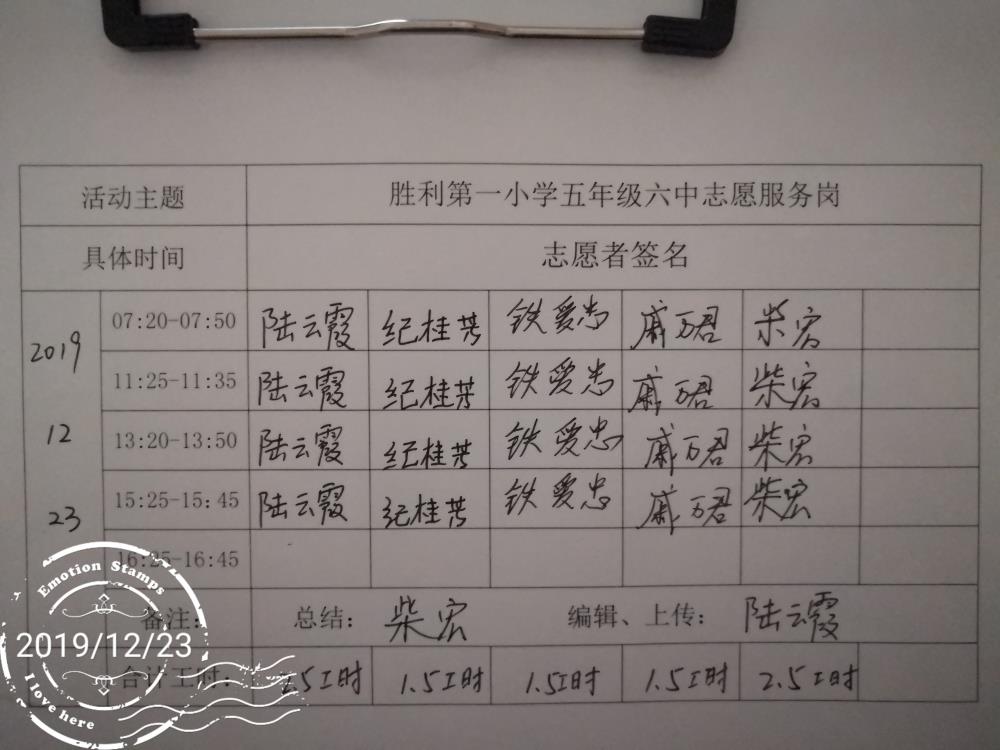 活动主题 胜利第一小学五年级六中志愿服务岗
具体时间 志愿者签名
2019 12 23
07:20-07:50 陆云霞 纪桂芳 铁爱忠 戚万君 柴宏
11:25-11:35 陆云霞 纪桂芳 铁爱忠 戚万君 柴宏
13:20-13:50 陆云霞 纪桂芳 铁爱忠 戚万君 柴宏
15:25-15:45 陆云霞 纪桂芳 铁爱忠 戚万君 柴宏
16:25-16:45
备注: 总结: 柴宏 编辑、上传: 陆云霞
合计工时: 工时 1.5工时 1.5工时 1.5工时 2.5工时
Emotion Stamps
2019/12/23
I love here